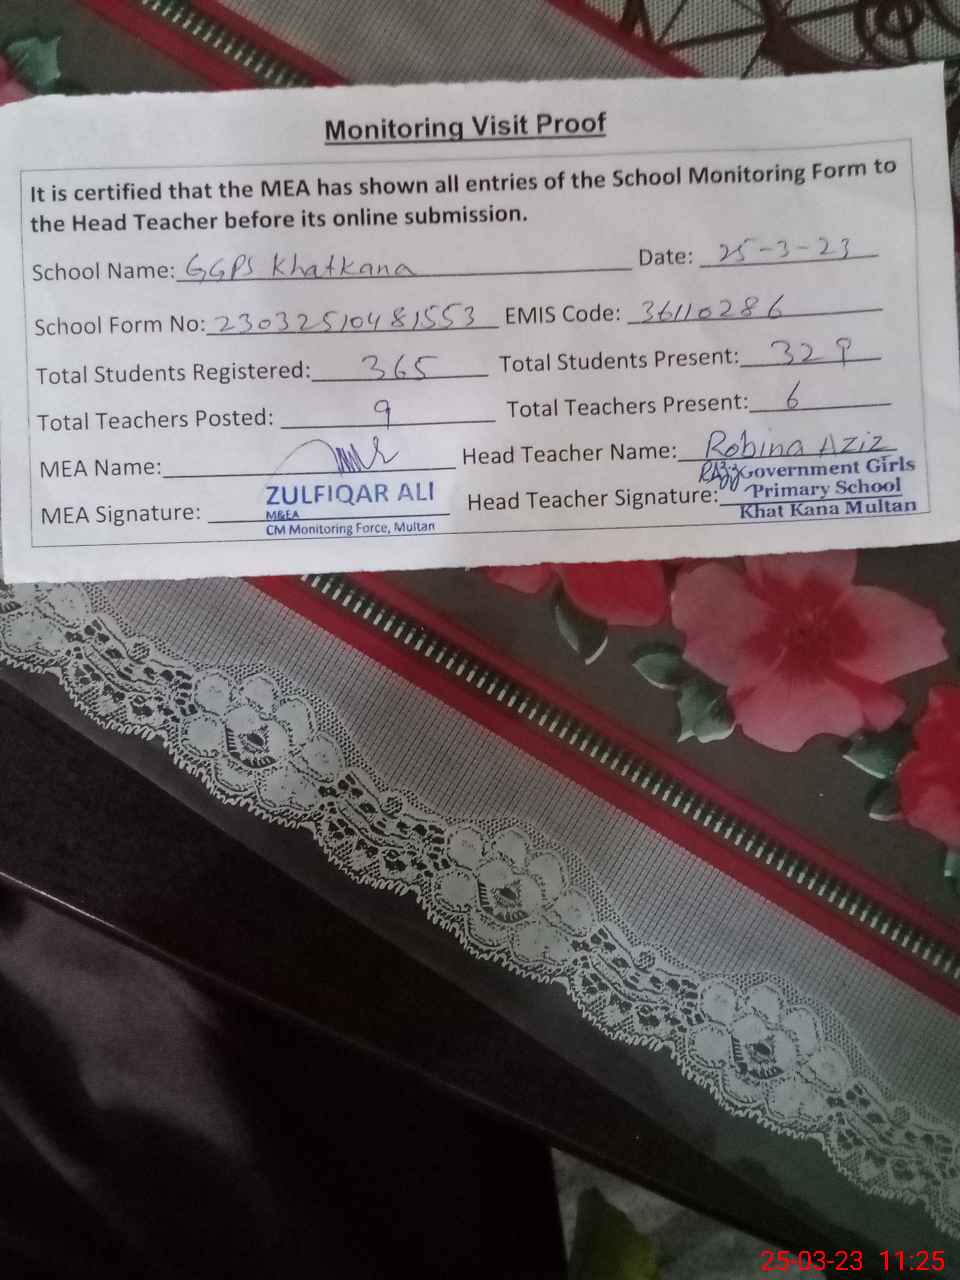 Monitoring Visit Proof
It is certified that the MEA has shown all entries of the School Monitoring Form to
the Head Teacher before its online submission.
School Name: GGPS Khatkana Date: 25-3-23
School Form No: 23032510481553 EMIS Code: 36110286
Total Students Registered: 365 Total Students Present: 329
Total Teachers Posted: 9 Total Teachers Present: 6
MEA Name: Head Teacher Name: Robina Aziz
MEA Signature: ZULFIQAR ALI Head Teacher Signature: Government Girls
M&EA Primary School
CM Monitoring Force, Multan Khat Kana Multan
25-03-23 11:25